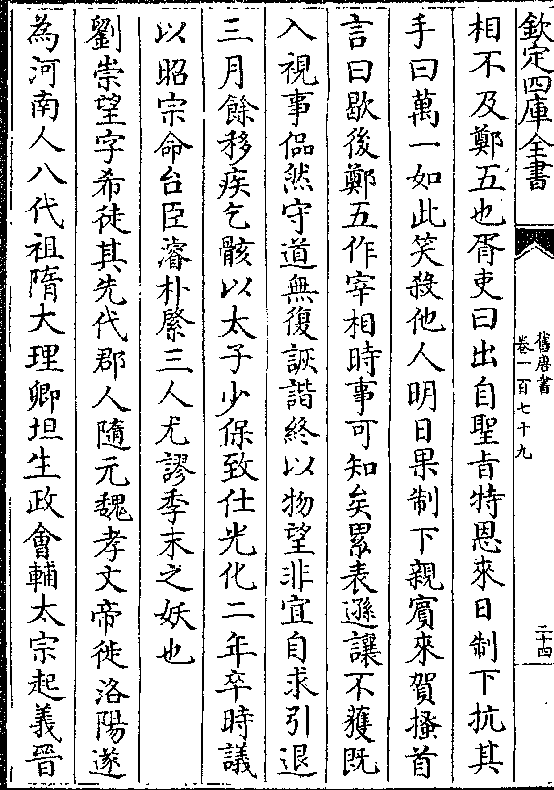 欽定四庫全書
舊唐書
卷一百七十九
二十四
相不及鄭五也胥吏曰出自聖旨特恩來日制下抗其
手曰萬一如此笑殺他人明日果制下親賓來賀搔首
言曰歇後鄭五作宰相時事可知矣累表遜讓不獲既
入視事偘然守道無復詼諧終以物望非宜自求引退
三月餘移疾乞骸以太子少保致仕光化二年卒時議
以昭宗命台臣濬朴綮三人尤謬季末之妖也
劉崇望字希徒其先代郡人隨元魏孝文帝徙洛陽遂
為河南人八代祖隋大理卿坦生政會輔太宗起義晉